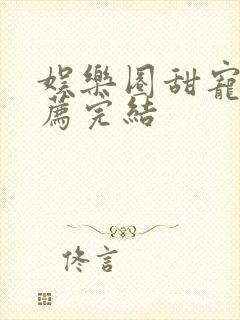 娛樂圈甜寵
薦完結
佟言